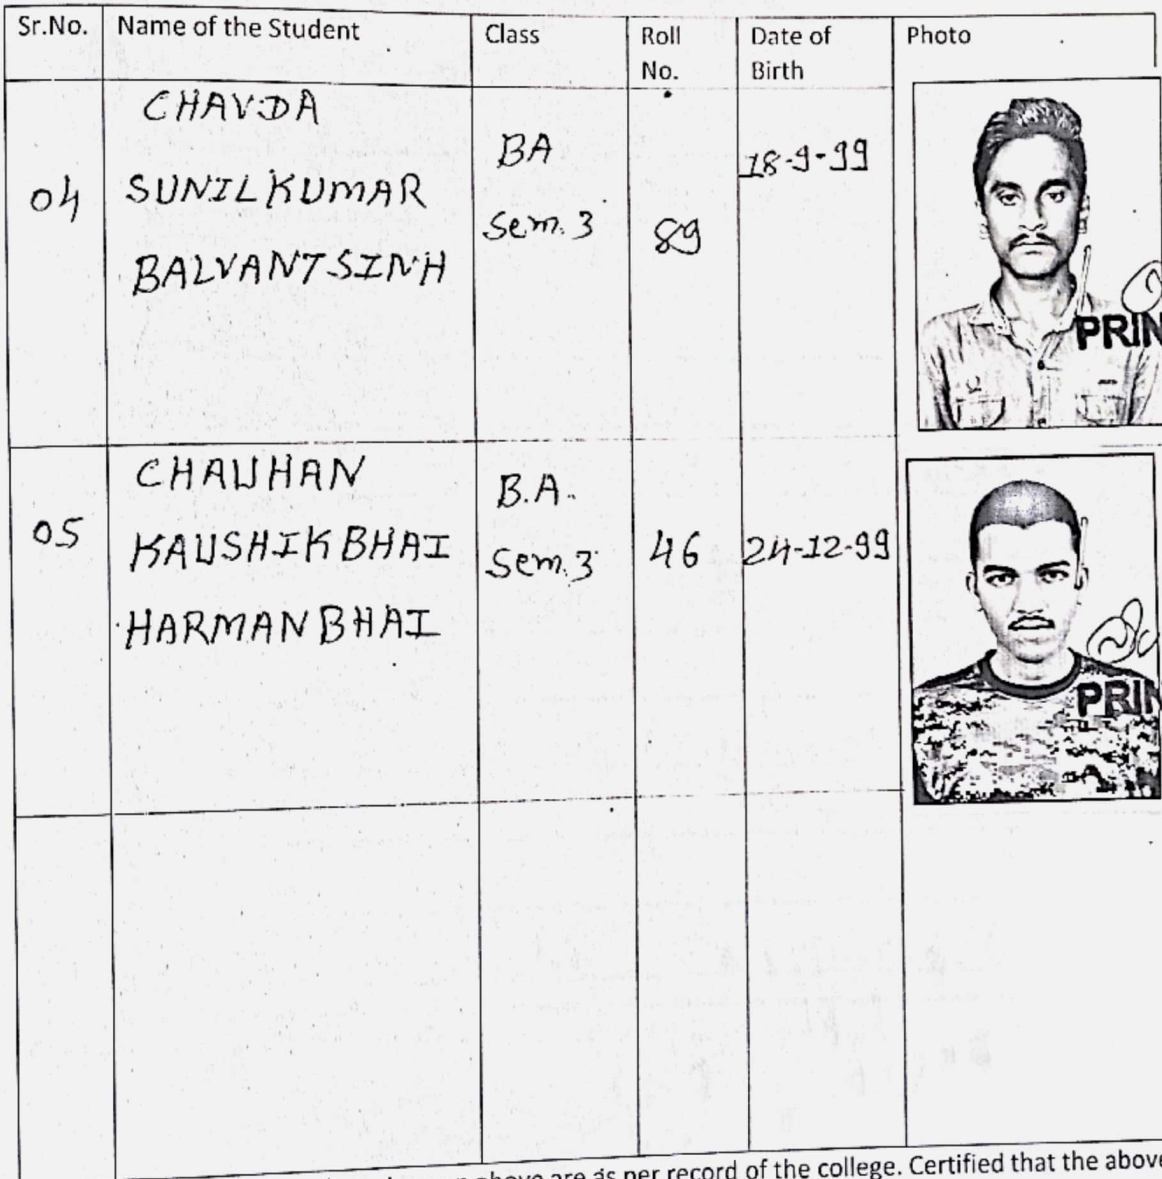 Sr.No. Name of the Student Class Roll No. Date of Birth Photo
04 CHAVDA SUNILKUMAR BALVANTSINH BA Sem. 3 89 18-9-99
PRIN
05 CHAUHAN KAUSHIKBHAI HARMANBHAI B.A. Sem. 3 46 24-12-99
PRIN
above are as per record of the college. Certified that the above